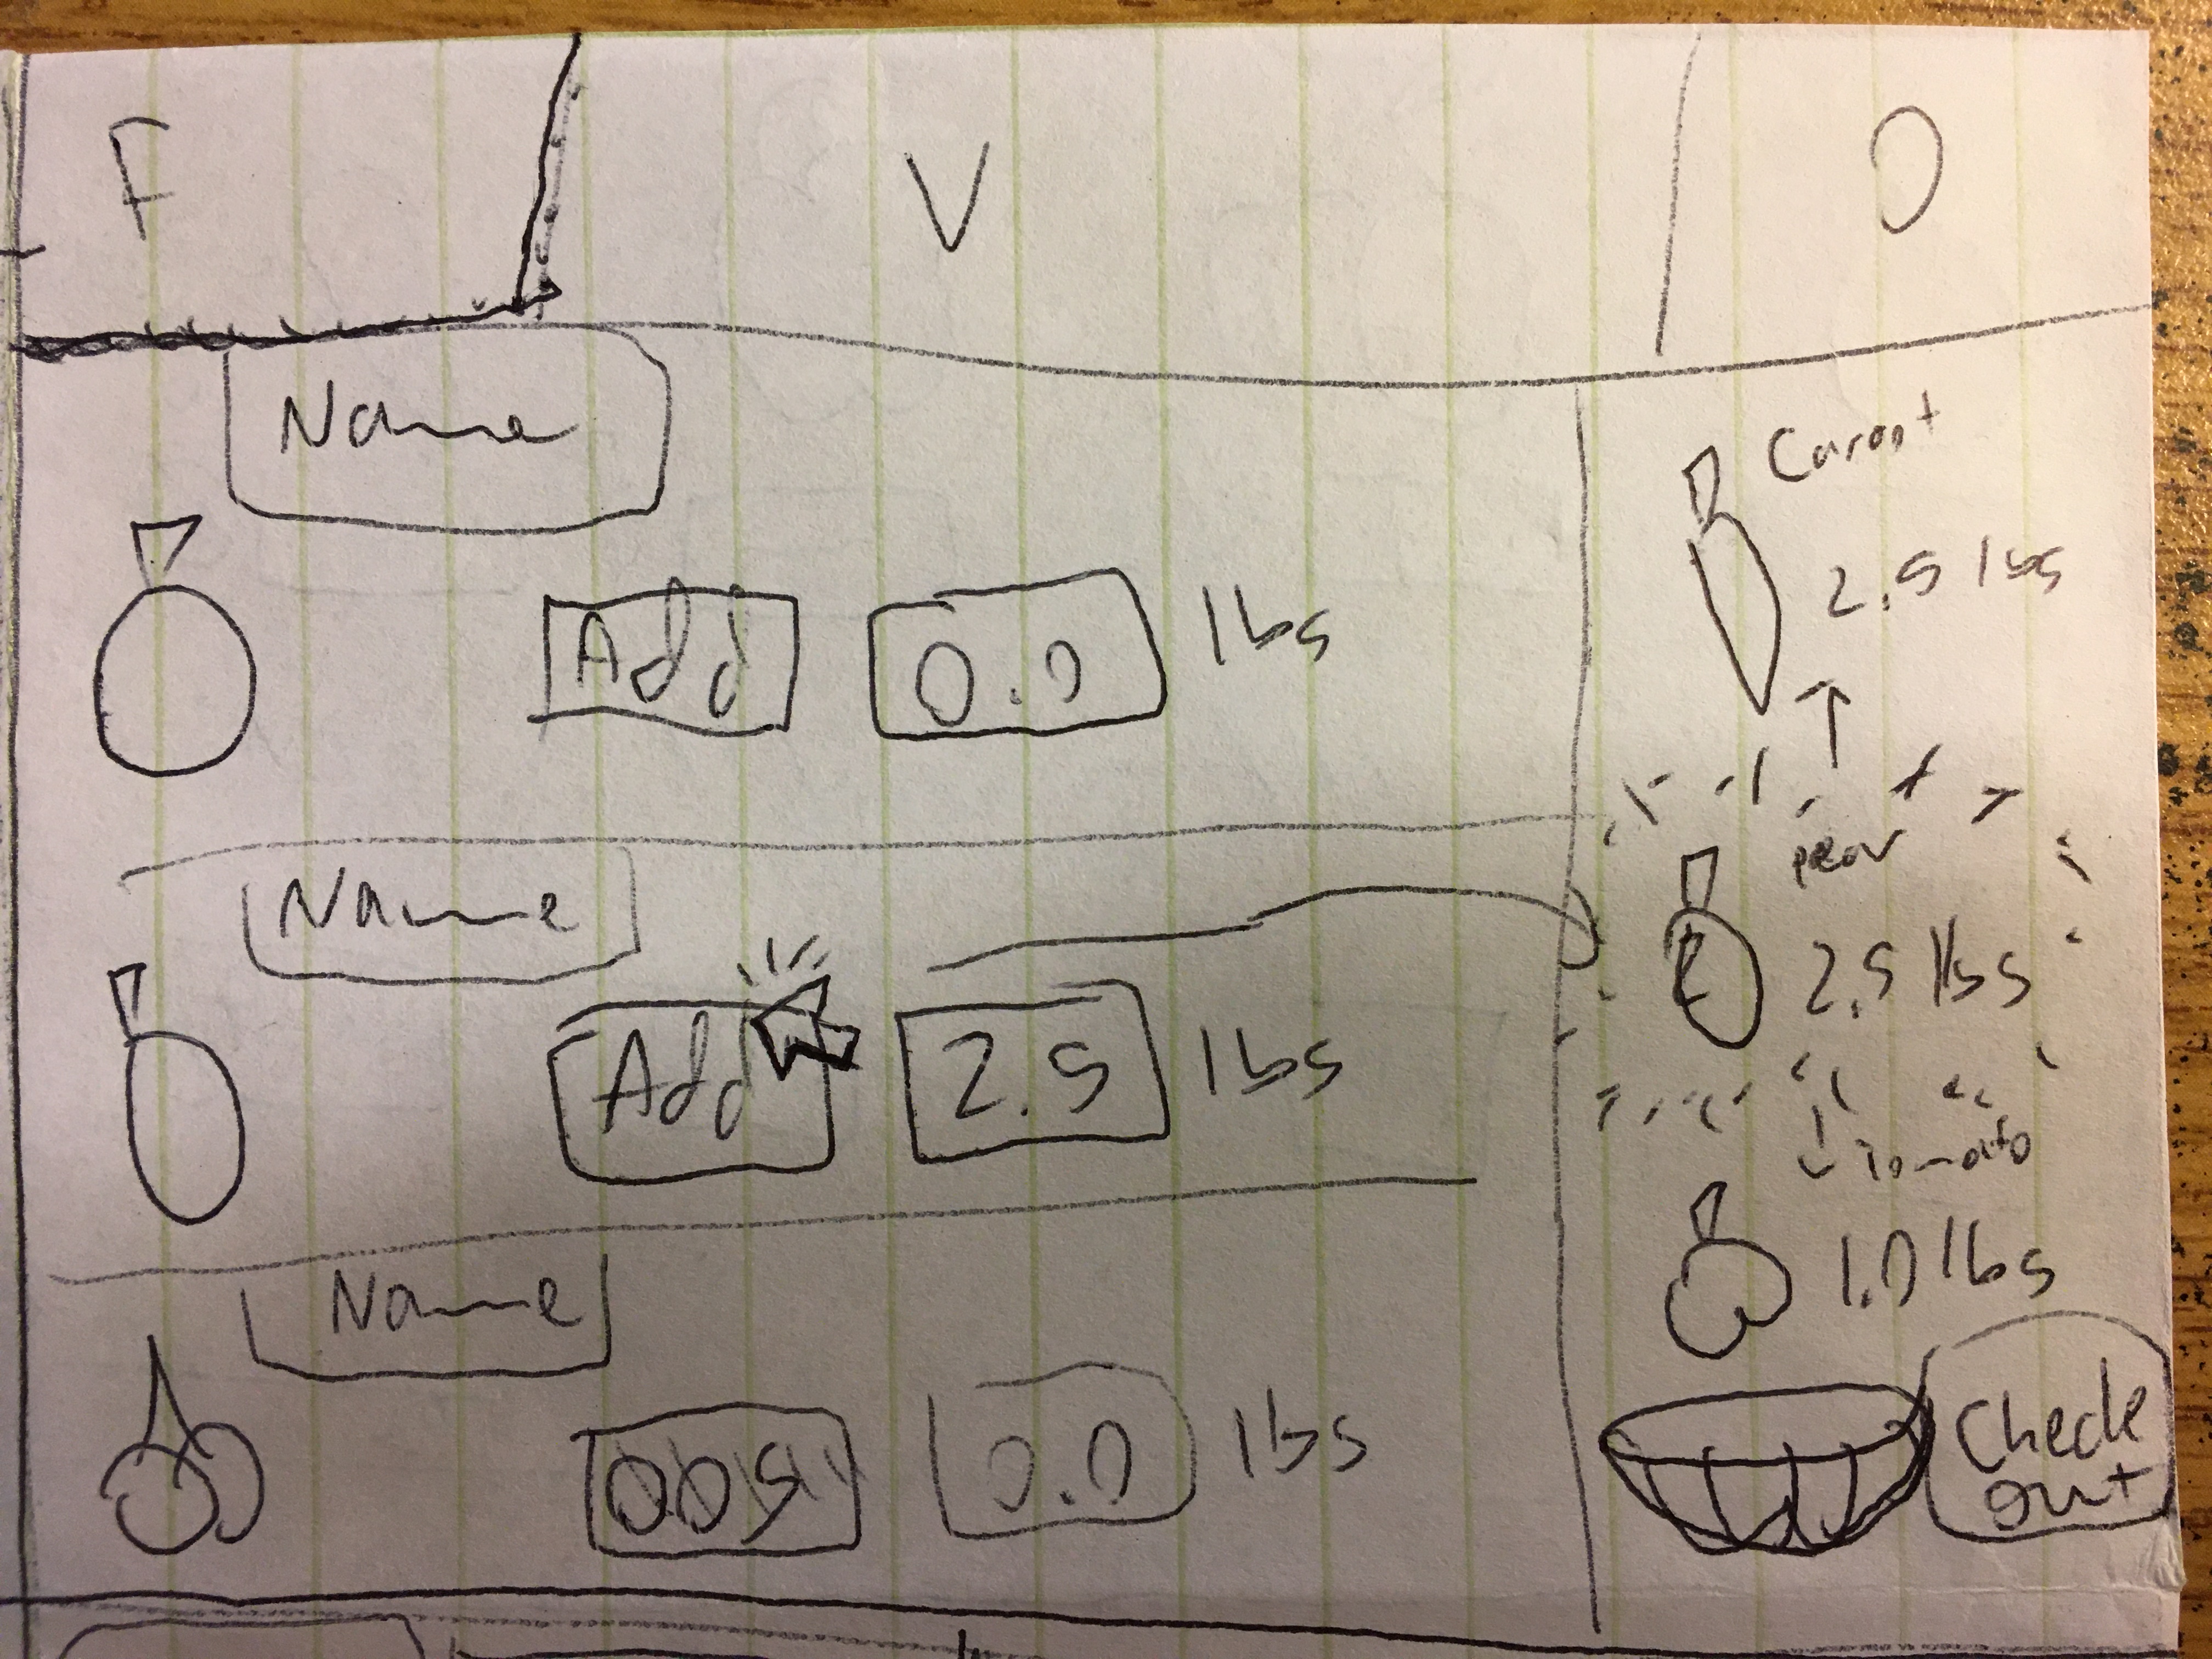 F V O
Name
Add 0.0 lbs
Name
Add 2.5 lbs
Name
OOS 0.0 lbs
Carrot
2.5 lbs
pear
2.5 lbs
Tomato
1.0 lbs
Check
out